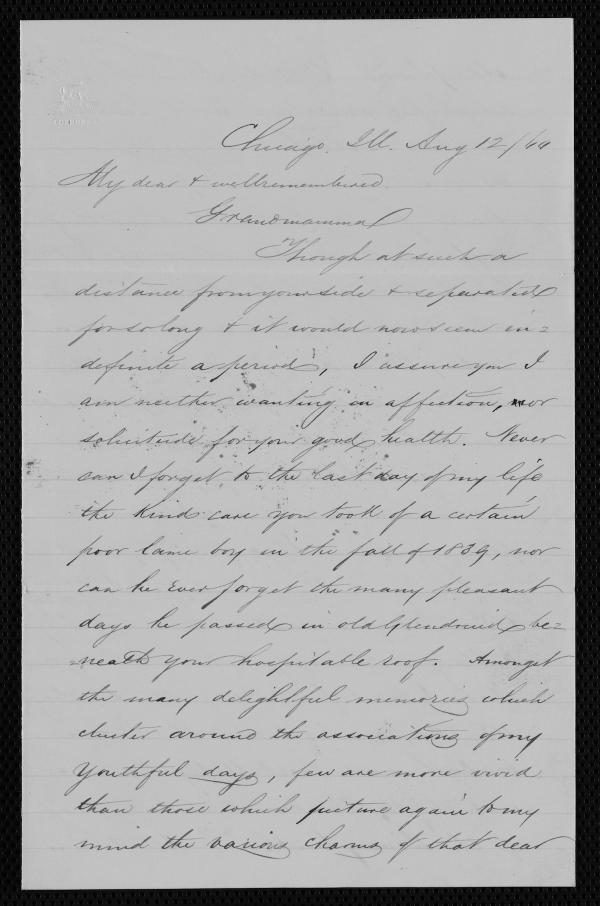 Chicago, Ill. Aug 12/60
My dear & well remembered
Grandmamma
Though at such a
distance from your side & separated
for so long & it would now seem in=
definite a period, I assure you I
am neither wanting in affection, nor
solicitude for your good health. Never
can I forget to the last day of my life
the kind care you took of a certain
poor lame boy in the fall of 1839, nor
can he ever forget the many pleasant
days he passed in old Glendruid be=
=neath your hospitable roof. Amongst
the many delightful memories which
cluster around the associations of my
youthful days, few are more vivid
than those which picture again to my
mind the various charms of that dear